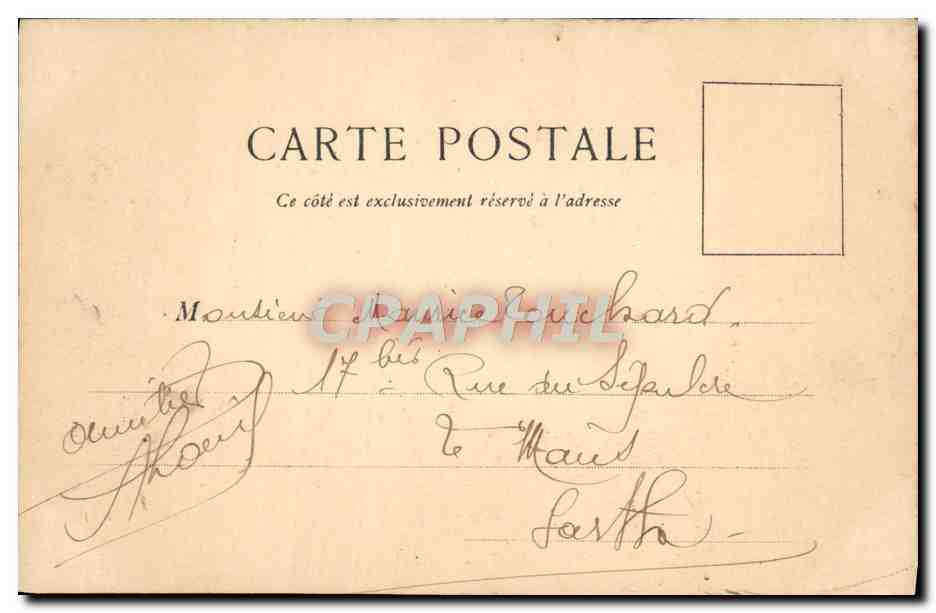 CARTE POSTALE
Ce côté est exclusivement réservé à l'adresse
Monsieur Maurice Touchard.
CPAPHIL
17 bis Rue du Sépulcre
amitiés
Le Mans
Sarthe